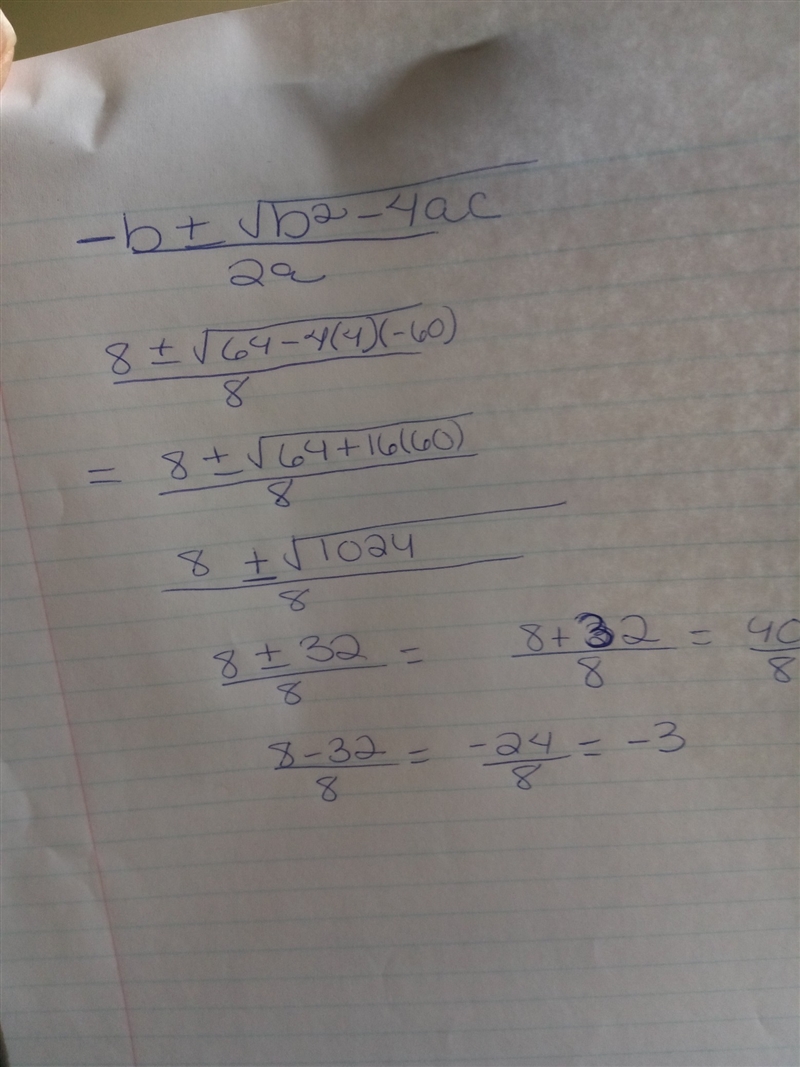 -b ± √b² - 4ac
2a
8 ± √64 - 4(4)(-60)
8
= 8 ± √64 + 16(60)
8
8 ± √1024
8
8 ± 32 = 8 + 32 = 40
8 8 8
8 - 32 = -24 = -3
8 8